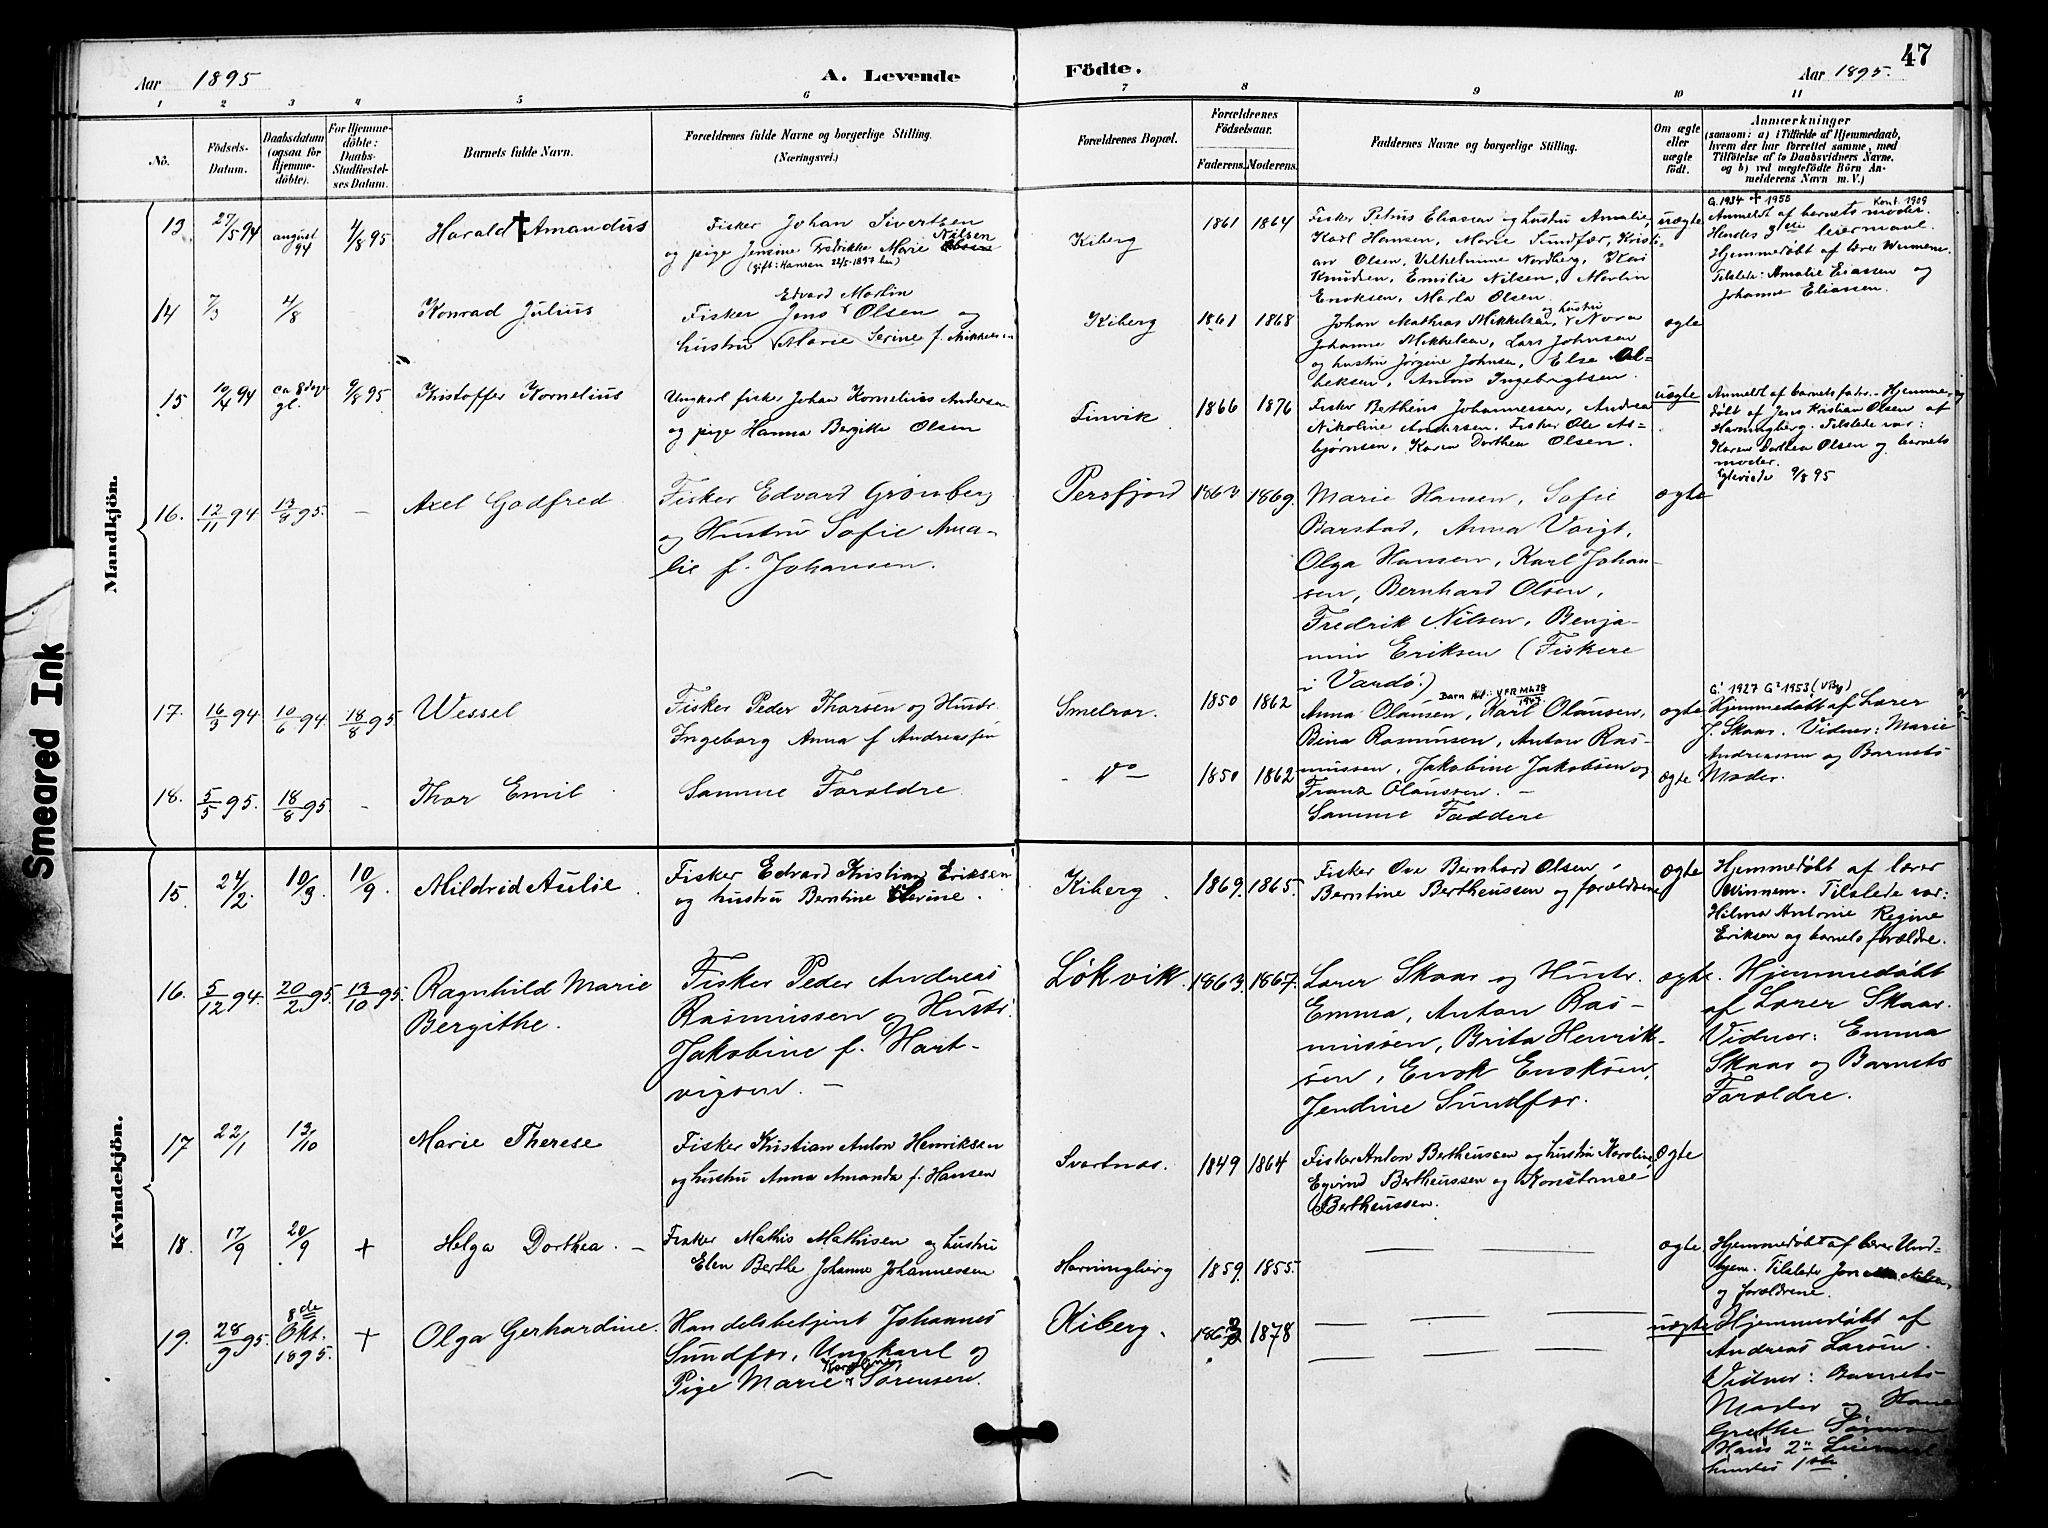 47
Aar 1895
A. Levende
Födte.
Aar 1895.
1 2 3 4 5 6 7 8 9 10 11
No.
Födsels-
Datum.
Daabsdatum
(ogsaa for
Hjemme-
döbte).
For Hjemme-
döbte:
Daabs-
Stadfæstel-
ses Datum.
Barnets fulde Navn.
Forældrenes fulde Navne og borgerlige Stilling.
(Næringsvei.)
Forældrenes Bopæl.
Forældrenes
Födselsaar.
Faderens. Moderens.
Faddernes Navne og borgerlige Stilling.
Om ægte
eller
uægte
födt.
Anmærkninger
(saasom: a) i Tilfælde af Hjemmedaab,
hvem der har forrettet samme, med
Tilföielse af to Daabsvidners Navne.
og b) ved uægtefödte Börn An-
melderens Navn m. V.)
Mandkjön.
13 27/5 94 august 94 4/8 95 Harald † Amandus
Fisker Johan Sivertsen
og pige Jensine Fredrikke Marie Nilsen
(gift: Hansen 22/5 1897 her)
Kiberg 1861 1864
Fisker Petrus Eliasen og hustru Amalie,
Karl Hansen, Marie Sundfær, Kristi-
an Olsen, Vilhelmine Nordberg, Kari
Knudsen, Emilie Nilsen, Martin
Enoksen, Marta Olsen.
uægte
G. 1934 † 1955 Konf. 1909
Anmeldt af barnets moder.
Hendes 3die leiermaal.
Hjemmedøbt af lærer
Tilstede: Amalie Eliassen og
Johanne Eliassen.
14 7/3 4/8 Konrad Julius
Edvard Martin
Fisker Jens Olsen og
hustru Marie Serine f. Mikkelsen
Kiberg 1861 1868
og hustru
Johan Mathias Mikkelsen, Nora
Johanne Mikkelsen, Lars Johnsen
og hustru Jørgine Johnsen, Else
Anton Ingebrigtsen.
ægte
15 10/4 94 ca 8 dage gl. 9/8 95 Kristoffer Kornelius
Ungkarl fisker Johan Kornelius Andersen
og pige Hanna Bergitte Olsen
Finvik 1866 1876
Fisker Bertheus Johannessen, Andrea
Nikoline Andersen. Fisker Ole As-
bjørnsen, Karen Dorthea Olsen.
uægte
Anmeldt af barnets fader. Hjemme-
døbt af Jens Kristian Olsen af
Havningberg. Tilstede var:
Karen Dorthea Olsen og barnets
moder.
Egteviede 9/8 95
16. 12/11 94 13/8 95. — Axel Godfred
Fisker Edvard Grønberg
og Hustru Sofie Ama-
lie f. Johansen.
Persfjord 1863 1869.
Marie Hansen, Sofie
Barstad, Anna Voigt,
Olga Hansen, Karl Johan-
sen, Bernhard Olsen,
Fredrik Nilsen, Benja-
min Eriksen (Fiskere
i Vardø.)
ægte
17. 16/3 94. 10/6 94. 18/8 95 Wessel
Fisker Peder Thorsen og Hustr.
Ingeborg Anna f Andreassen
Smelror. 1850 1862
Anna Olausen, Karl Olausen,
Bina Rasmusen, Anton Ras-
mussen, Jakobine Jakobsen og
Franz Olaussen. —
ægte
G1 1927 G2 1953 (VBy)
Hjemmedøbt af Lærer
J. Skaar. Vidner: Marie
Andreassen og Barnets
Moder.
18. 5/5 95. 18/8 95. - Thor Emil
Samme Foroldre.
- do - 1850 1862
Samme Faddere
ægte
Kvindekjön.
15. 24/2. 10/3 10/9. Mildrid Aulie
Fisker Edvard Kristian Eriksen
og hustru Berntine Severine.
Kiberg. 1869. 1865.
Fisker Ove Bernhard Olsen,
Berntine Bertheussen og forældrene
ægte
Hjemmedøbt af lærer
Winnem. Tilstede var:
Hilma Antonie Regine
Eriksen og barnets forældre.
16. 5/12 94. 20/2 95. 13/10 95. Ragnhild Marie
Bergithe.
Fisker Peder Andreas
Rasmussen og Hustr.
Jakobine f. Hart-
vigsen. —
Løkvik. 1863. 1867.
Lærer Skaar og Hustr.
Emma, Anton Ras-
mussen, Brita Henrik-
sen, Enok Enoksen,
Jendine Sundfor.
ægte.
Hjemmedøbt
af Lærer Skaar.
Vidner: Emma
Skaar og Barnets
Foroldre.
17 22/1 13/10 Marie Therese
Fisker Kristian Anton Henriksen
og hustru Anna Amanda f. Hansen
Svartnæs. 1849 1864
Fisker Anton Bertheussen og hustru Karoline,
Eyvind Bertheussen og Konstanse
Bertheussen.
Ægte
18. 17/9 20/9 + Helga Dorthea. —
Fisker Mathis Mathisen og hustru
Elen Berthe Johanne Johannessen
Havningberg 1859. 1855.
ægte.
Hjemmedøbt af lærer Und-
hjem. Tilstede
og forældrene.
19. 28/9 95. 8de Okt. 1895. + Olga Gerhardine.
Handelsbetjent Johannes
Sundfær, Ungkarl og
Pige Marie Sørensen.
Kiberg. 1878
uægte
Hjemmedøbt af
Andreas Larsen.
Vidner: Barnets
Moder og Hane
Grethe
Hans 2"
hendes 1ste
Smeared Ink